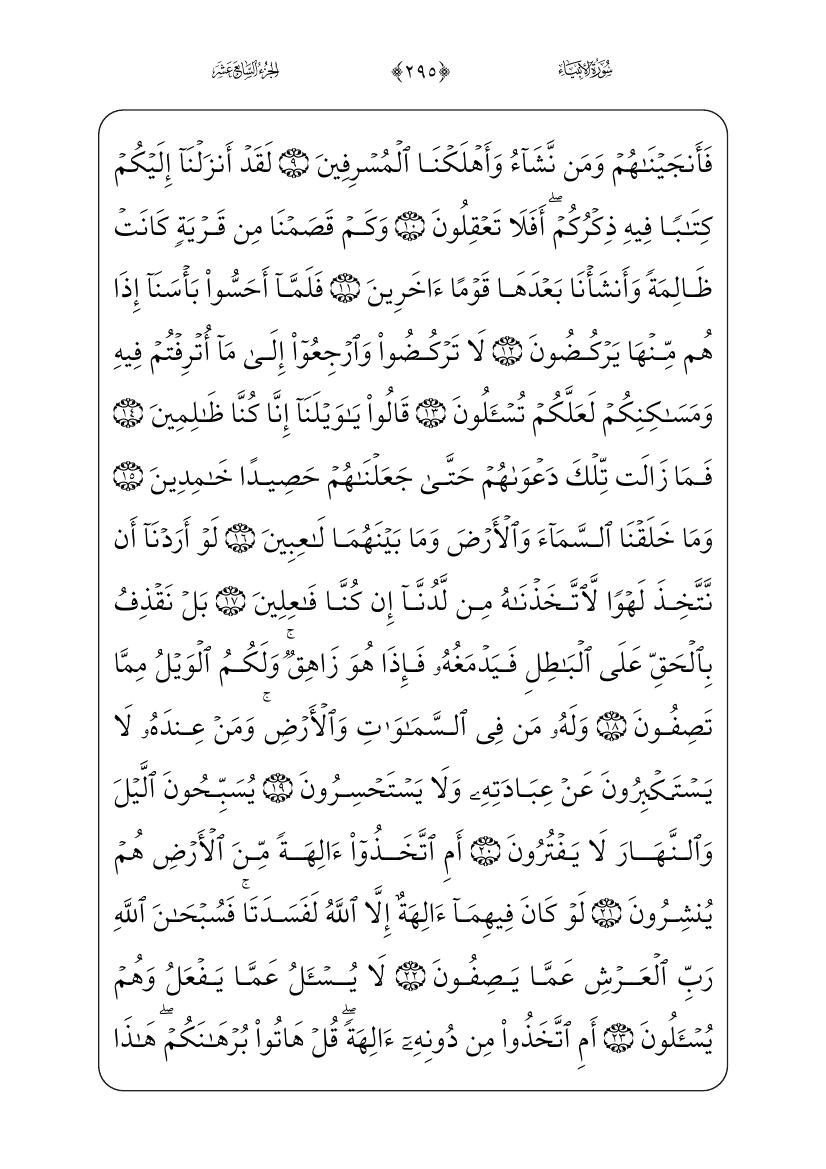 سُورَةُ الأَنبِيَاءِ ﴿٢٩٥﴾ الجُزْءُ السَّابِعَ عَشَرَ
فَأَنجَيۡنَٰهُمۡ وَمَن نَّشَآءُ وَأَهۡلَكۡنَا ٱلۡمُسۡرِفِينَ ٩ لَقَدۡ أَنزَلۡنَآ إِلَيۡكُمۡ
كِتَٰبٗا فِيهِ ذِكۡرُكُمۡۖ أَفَلَا تَعۡقِلُونَ ١٠ وَكَمۡ قَصَمۡنَا مِن قَرۡيَةٖ كَانَتۡ
ظَالِمَةٗ وَأَنشَأۡنَا بَعۡدَهَا قَوۡمًا ءَاخَرِينَ ١١ فَلَمَّآ أَحَسُّواْ بَأۡسَنَآ إِذَا
هُم مِّنۡهَا يَرۡكُضُونَ ١٢ لَا تَرۡكُضُواْ وَٱرۡجِعُوٓاْ إِلَىٰ مَآ أُتۡرِفۡتُمۡ فِيهِ
وَمَسَٰكِنِكُمۡ لَعَلَّكُمۡ تُسۡـَٔلُونَ ١٣ قَالُواْ يَٰوَيۡلَنَآ إِنَّا كُنَّا ظَٰلِمِينَ ١٤
فَمَا زَالَت تِّلۡكَ دَعۡوَىٰهُمۡ حَتَّىٰ جَعَلۡنَٰهُمۡ حَصِيدًا خَٰمِدِينَ ١٥
وَمَا خَلَقۡنَا ٱلسَّمَآءَ وَٱلۡأَرۡضَ وَمَا بَيۡنَهُمَا لَٰعِبِينَ ١٦ لَوۡ أَرَدۡنَآ أَن
نَّتَّخِذَ لَهۡوٗا لَّٱتَّخَذۡنَٰهُ مِن لَّدُنَّآ إِن كُنَّا فَٰعِلِينَ ١٧ بَلۡ نَقۡذِفُ
بِٱلۡحَقِّ عَلَى ٱلۡبَٰطِلِ فَيَدۡمَغُهُۥ فَإِذَا هُوَ زَاهِقٞۚ وَلَكُمُ ٱلۡوَيۡلُ مِمَّا
تَصِفُونَ ١٨ وَلَهُۥ مَن فِي ٱلسَّمَٰوَٰتِ وَٱلۡأَرۡضِۚ وَمَنۡ عِندَهُۥ لَا
يَسۡتَكۡبِرُونَ عَنۡ عِبَادَتِهِۦ وَلَا يَسۡتَحۡسِرُونَ ١٩ يُسَبِّحُونَ ٱلَّيۡلَ
وَٱلنَّهَارَ لَا يَفۡتُرُونَ ٢٠ أَمِ ٱتَّخَذُوٓاْ ءَالِهَةٗ مِّنَ ٱلۡأَرۡضِ هُمۡ
يُنشِرُونَ ٢١ لَوۡ كَانَ فِيهِمَآ ءَالِهَةٌ إِلَّا ٱللَّهُ لَفَسَدَتَاۚ فَسُبۡحَٰنَ ٱللَّهِ
رَبِّ ٱلۡعَرۡشِ عَمَّا يَصِفُونَ ٢٢ لَا يُسۡـَٔلُ عَمَّا يَفۡعَلُ وَهُمۡ
يُسۡـَٔلُونَ ٢٣ أَمِ ٱتَّخَذُواْ مِن دُونِهِۦٓ ءَالِهَةٗۖ قُلۡ هَاتُواْ بُرۡهَٰنَكُمۡۖ هَٰذَا